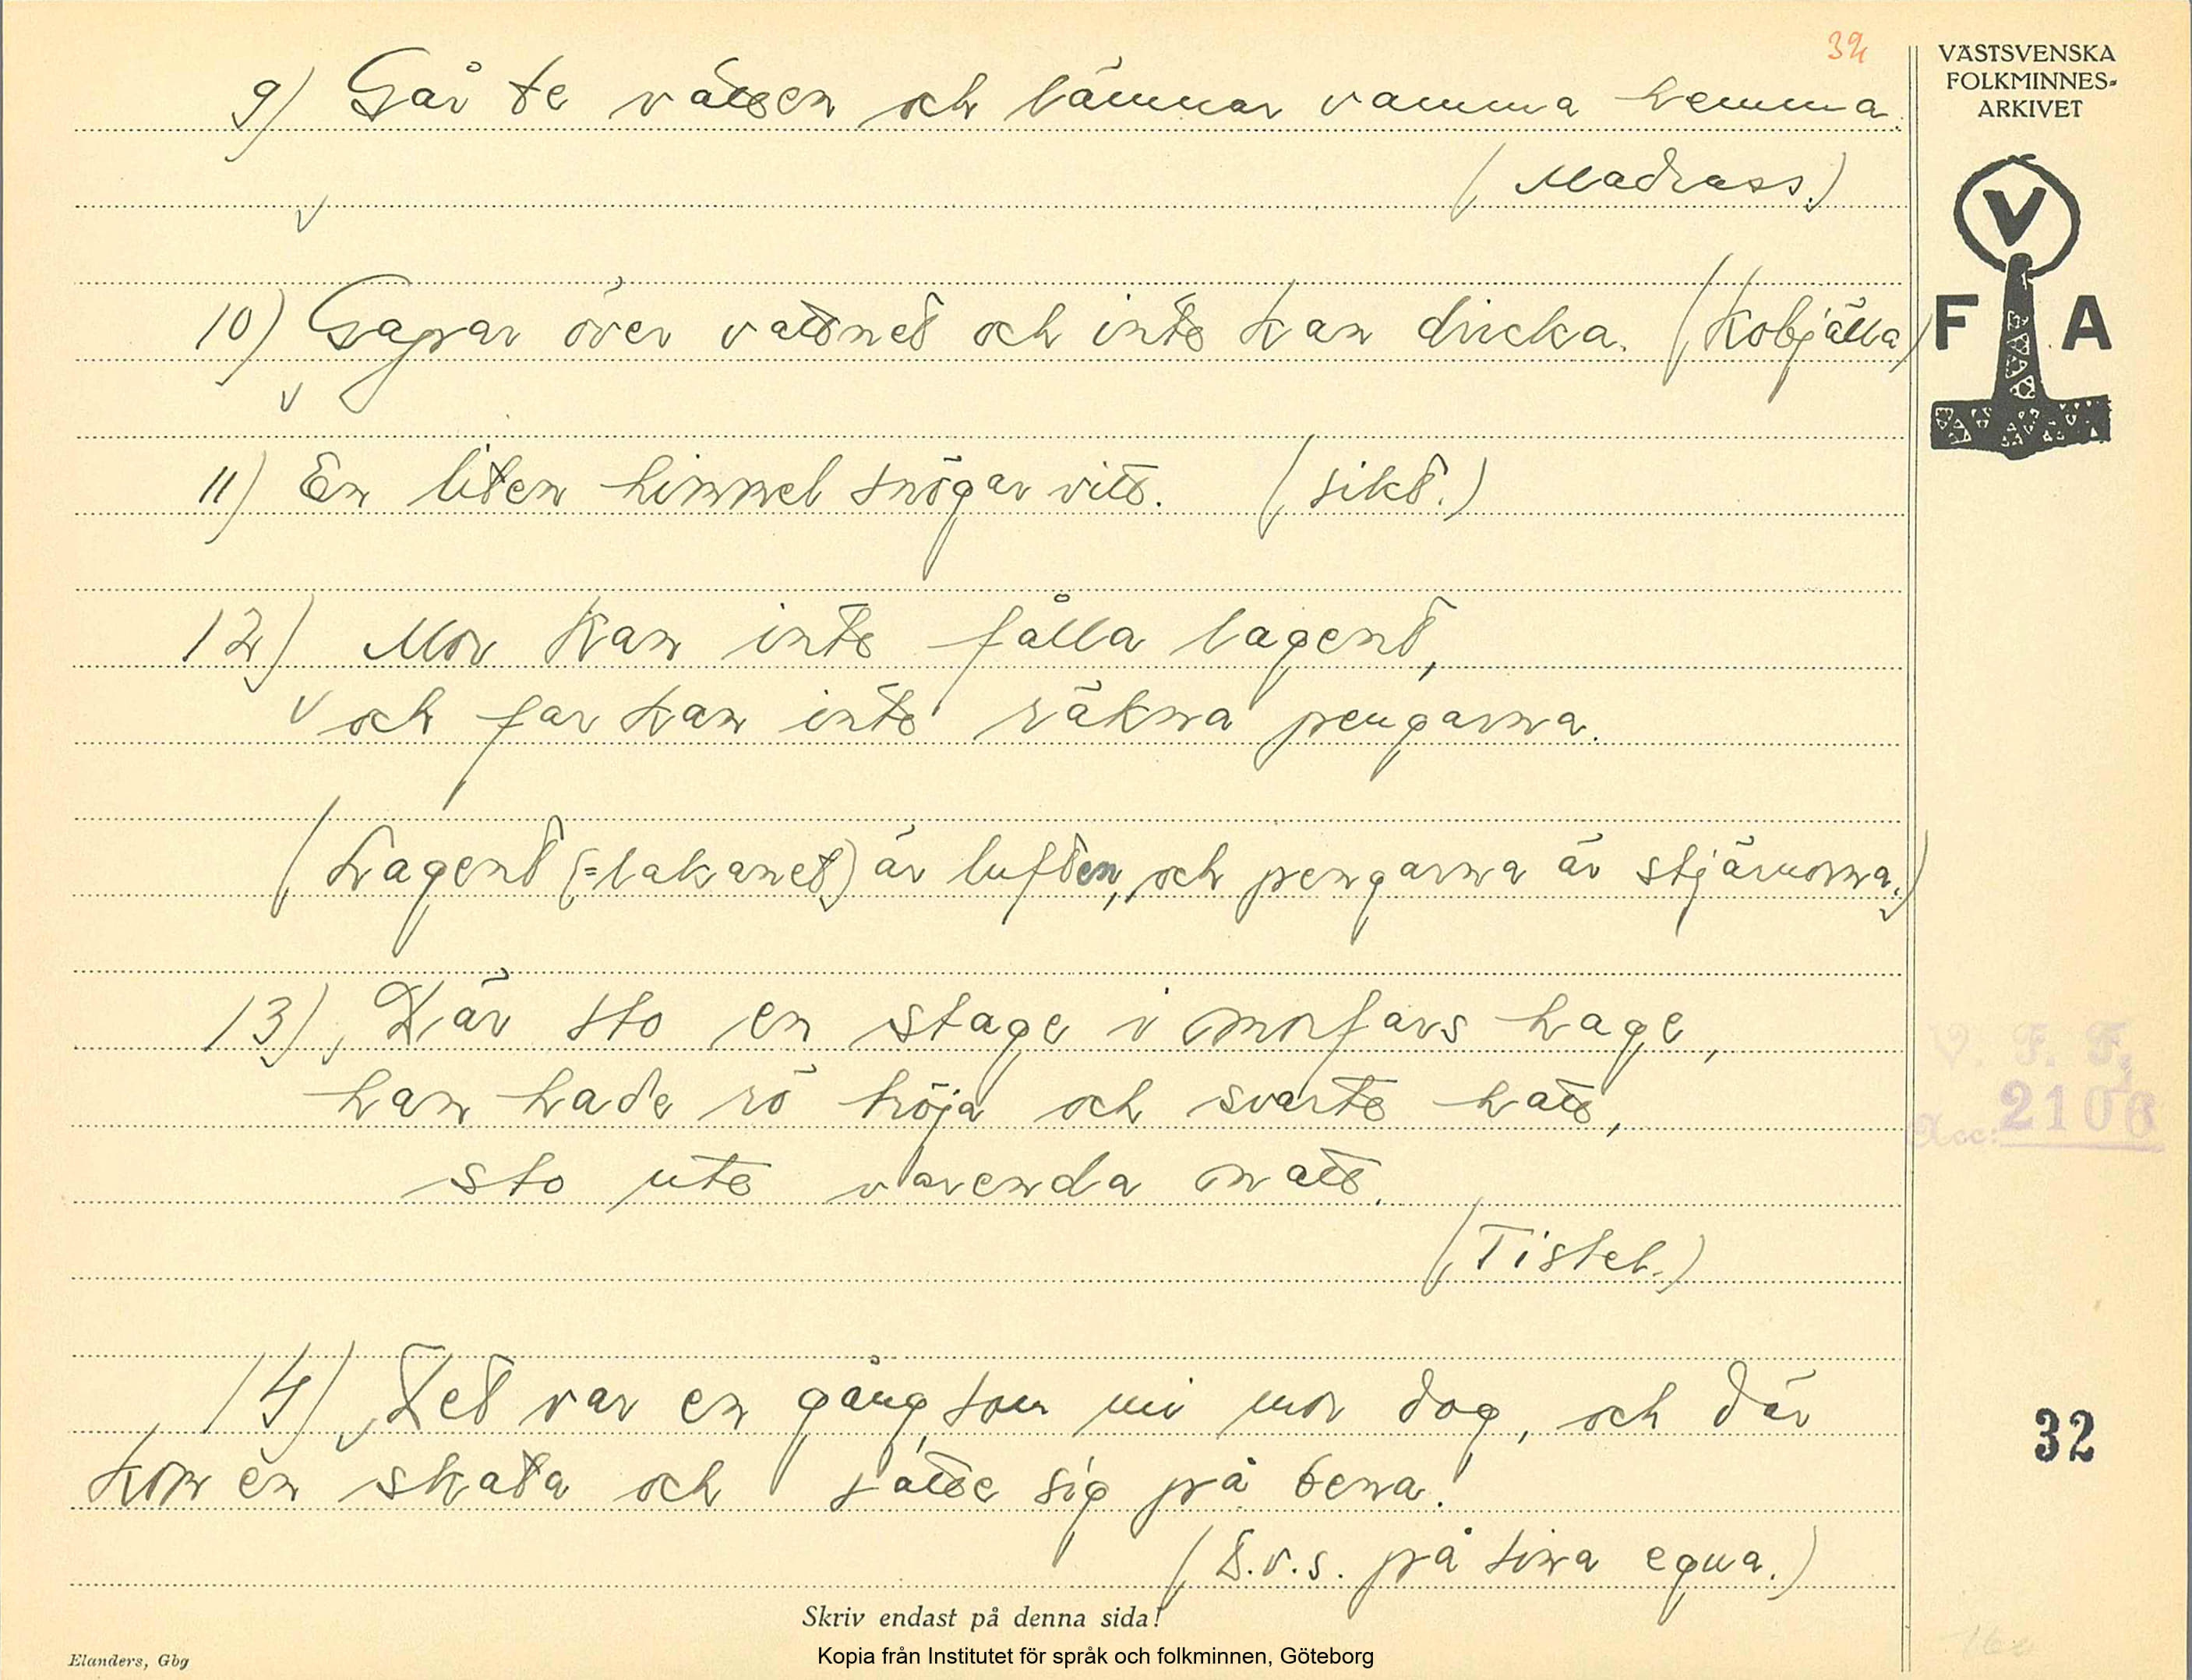 32
VÄSTSVENSKA
FOLKMINNES-
ARKIVET
V
F A
9) Går te vatten och lämnar vamma hemma.
(Madrass.)
10) Gapar över vattnet och inte kan dricka. (Kobjälla)
11) En liten himmel snögar vitt. (Sikt.)
12) Mor kan inte fålla lagent,
och far kan inte räkna pengarna.
(Lagent (=lakanet) är luften, och pengarna är stjärnorna.)
13) Där sto en stage i morfars hage,
han hade rö tröja och svarte hatt,
sto ute varenda natt.
(Tistel.)
14) Det var en gång, som mi mor dog, och där
kom en skata och satte sig på bena.
(D.v.s. på sina egna.)
V. F. F.
Acc: 2106
32
Skriv endast på denna sida!
Kopia från Institutet för språk och folkminnen, Göteborg
Elanders, Gbg